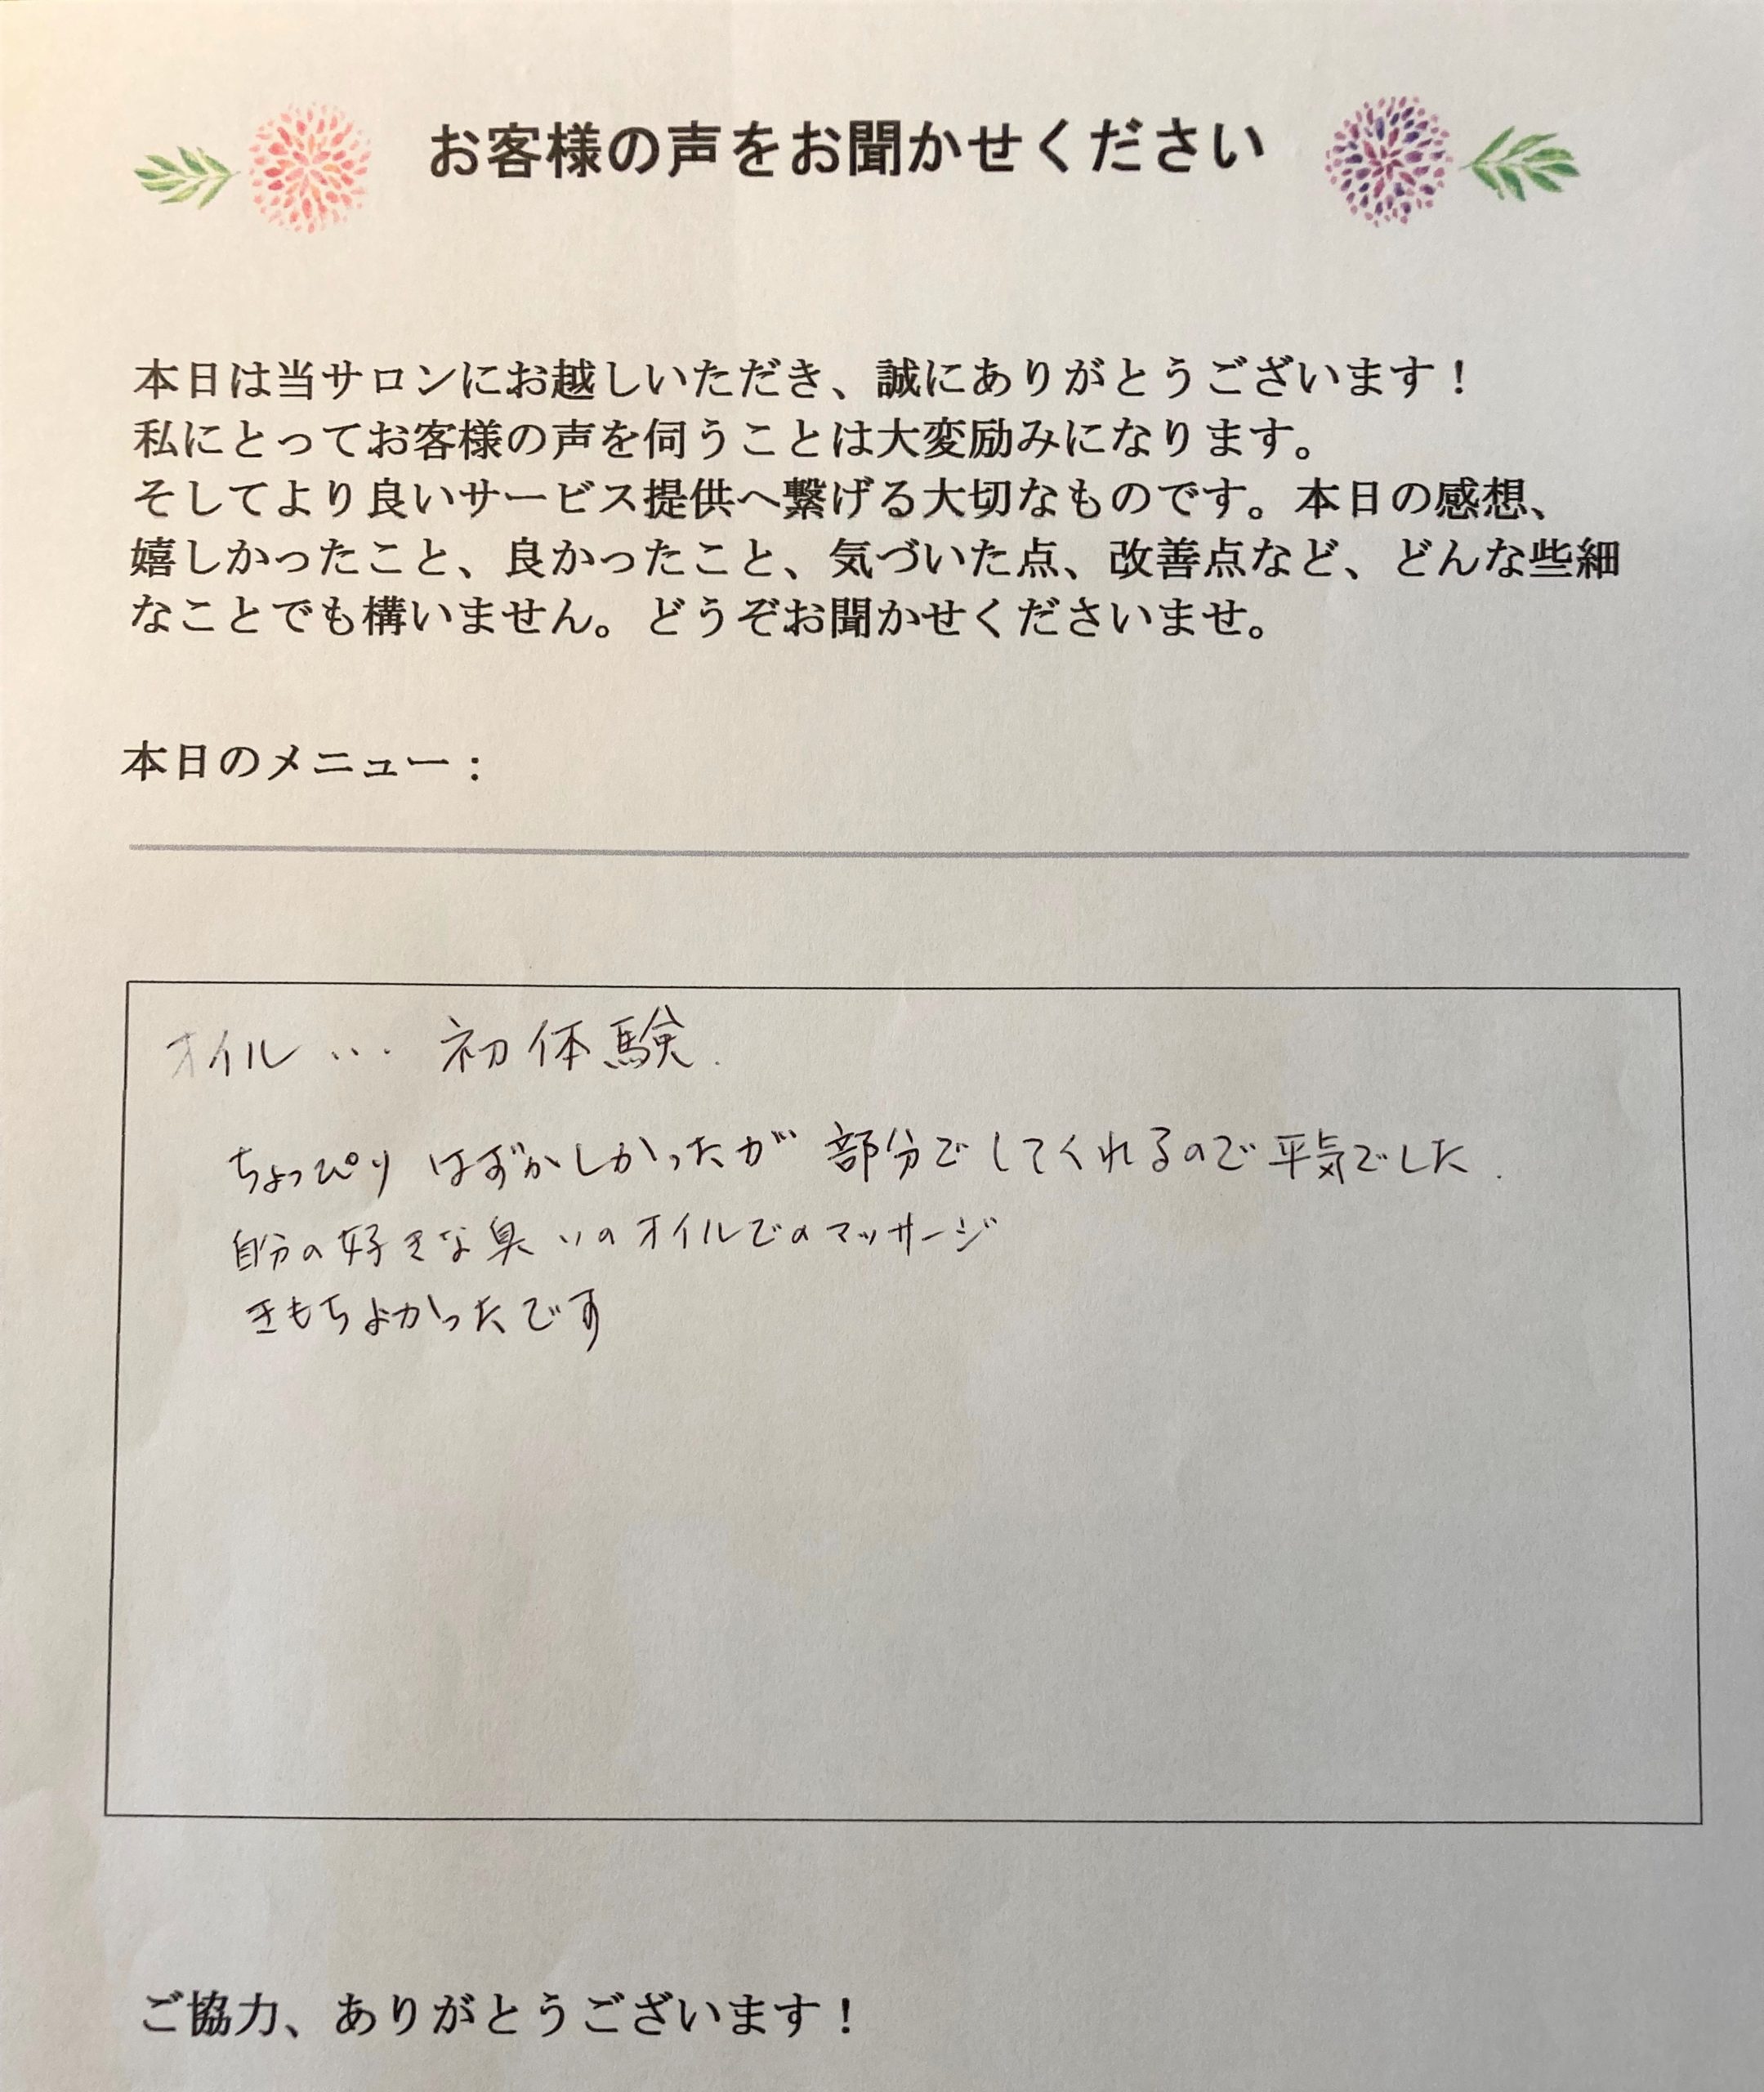 お客様の声をお聞かせください
本日は当サロンにお越しいただき、誠にありがとうございます！
私にとってお客様の声を伺うことは大変励みになります。
そしてより良いサービス提供へ繋げる大切なものです。本日の感想、
嬉しかったこと、良かったこと、気づいた点、改善点など、どんな些細
なことでも構いません。どうぞお聞かせくださいませ。
本日のメニュー：
オイル … 初体験.
ちょっぴり はずかしかったが 部分でしてくれるので平気でした.
自分の好きな臭いのオイルでのマッサージ
きもちよかったです
ご協力、ありがとうございます！